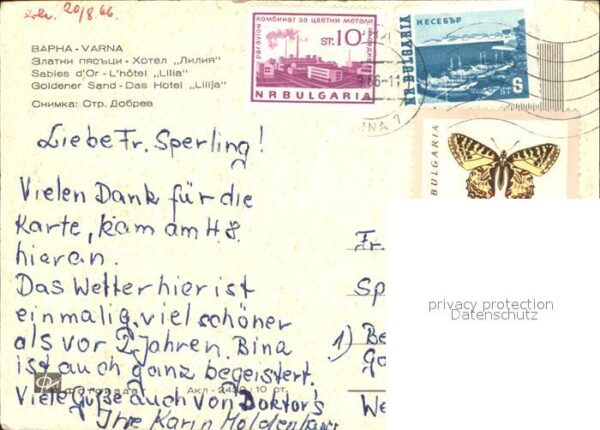 erh. 20/8.66
ВАРНА - VARNA
Златни пясъци - Хотел „Лилия"
Sables d'Or - L'hôtel „Lilia"
Goldener Sand - Das Hotel „Lilija"
Снимка: Стр. Добрев
paravion
КОМБИНАТ ЗА ЦВЕТНИ МЕТАЛИ
ST. 10
NRBULGARIA
НЕСЕБЪР
NR BULGARIA
6 ST
BULGARIA
Liebe Fr. Sperling!
Vielen Dank für die
Karte, kam am 14.8.
hieran.
Das Wetter hier ist
einmalig, viel schöner
als vor 2 Jahren. Bina
ist auch ganz begeistert.
Viele Grüße auch von Doktor's
Ihre Karin Moldenhauer
Фотоиздат Акл - 2430 / 10 ст.
Fr.
Sp
1) Be
Go
We
privacy protection
Datenschutz